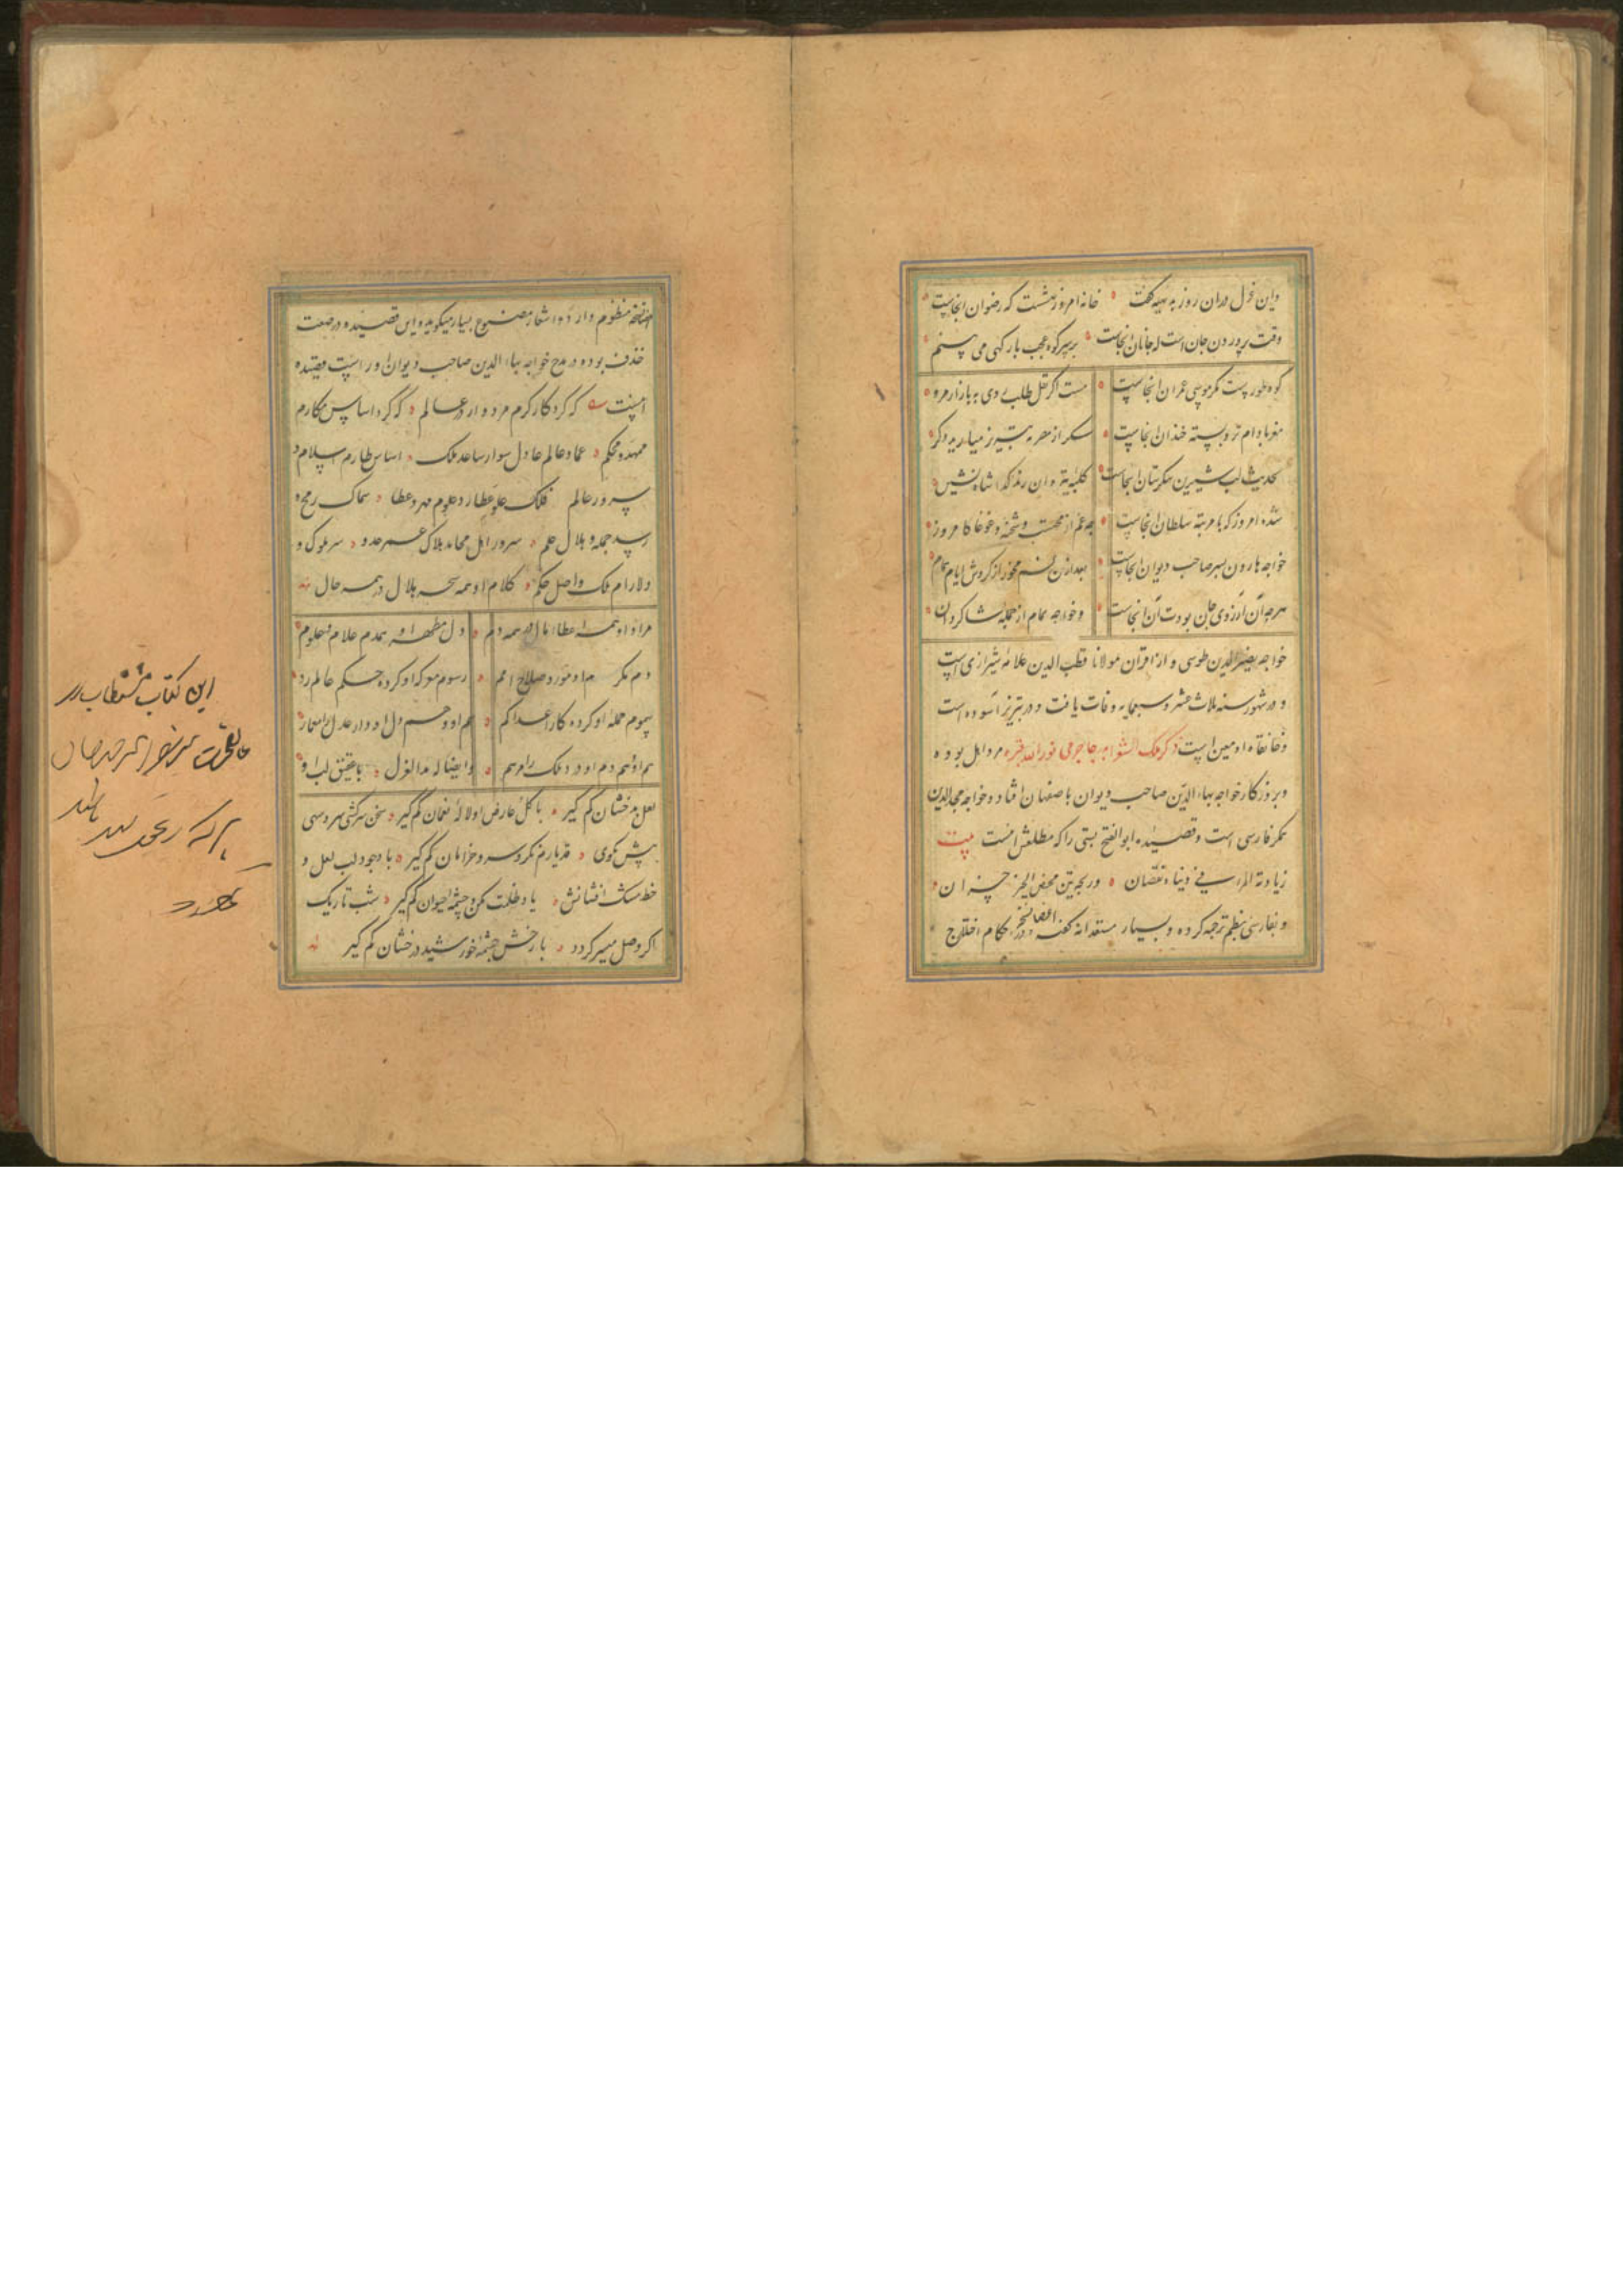 واین غزل دران روز بدیهه گفت خانه امروز بهشت است که رضوان اینجاست
وقت پروردن جان است که جانان اینجاست بر سر کوه عجب بارگهی می بینم
کوه طورست مگر موسی عمران اینجاست مست اگر نقل طلب کردی به بازار مرو
مغز بادام تر و پسته خندان اینجاست شکر از مصر به تبریز میارید دگر
بحدیث لب شیرین شکرستان اینجاست کلبه تیره این رند گدا شاه نشین
شده امروز که با مرتبه سلطان اینجاست چه غم از محتسب و شحنه و غوغا کامروز
خواجه هارون پسر صاحب دیوان اینجاست بعد ازین غم مخور از گردش ایام همام
هرچه آن آرزوی جان بودت آن اینجاست وخواجه همام از جمله شاکردان
خواجه نصیرالدین طوسی و از اقران مولانا قطب الدین علامه شیرازی است
و در شهور سنه ثلاث عشر و سبعمایه وفات یافت و در تبریز آسوده است
وخانقاه او معین است ذکر ملک الشعرا بدر جاجرمی نورالله قبره مرد اهل بوده
وبروزکار خواجه بهاء الدین صاحب دیوان باصفهان افتاد وخواجه مجدالدین
همکر فارسی است وقصیده ابوالفتح بستی راکه مطلعش اینست بیت
زیادة المرء فی دنیاه نقصان وربحه غیر محض الخیر خسران
و بفارسی بنظم ترجمه کرده و بسیار مستعدانه گفته و در احکام اختلاج
نسخه منظوم دارد و اشعار مصنوع بسیار میکوید واین قصیده در صنعت
حذف بوده در مدح خواجه بهاء الدین صاحب دیوان اوراست قصیده
اینست که کرد کار کرم مردوار در عالم که کرد اساس مکارم
ممهد و محکم عماد عالم عادل سوار ساعد ملک اساس طارم اسلام و
سرور عالم فلک علو عطارد علوم مهر عطا سماک رمح و
اسد حمله و هلال علم سرور اهل محامد هلاک عمر عدو سر ملوک و
دلارام ملک و اصل حکم کلام او همه سحر حلال در همه حال
مراد او همه اعطاء مال در همه دم دل مطهر او همدم علام و علوم
دم مکرم او مورد صلاح امم رسوم موکه او کرده حکم عالم رد
سموم حمله او کرده کار اعدا کم هم او و هم دل او دار عدل را معمار
هم او و هم دم او درد ملک را مرهم وایضا له هذا الغزل با عقیق لب او
لعل بدخشان کم گیر با گل عارض او لاله نعمان کم گیر سخن سرکشی سرو سهی
پیش مکوی قد یارم نگر و سرو خرامان کم گیر با وجود لب لعل و
خط مشک افشانش یاد ظلمت مکن و چشمه حیوان کم گیر شب تاریک
اگر وصل میسر کردد با رخش چشمه خورشید درخشان کم گیر
این کتاب مستطاب در